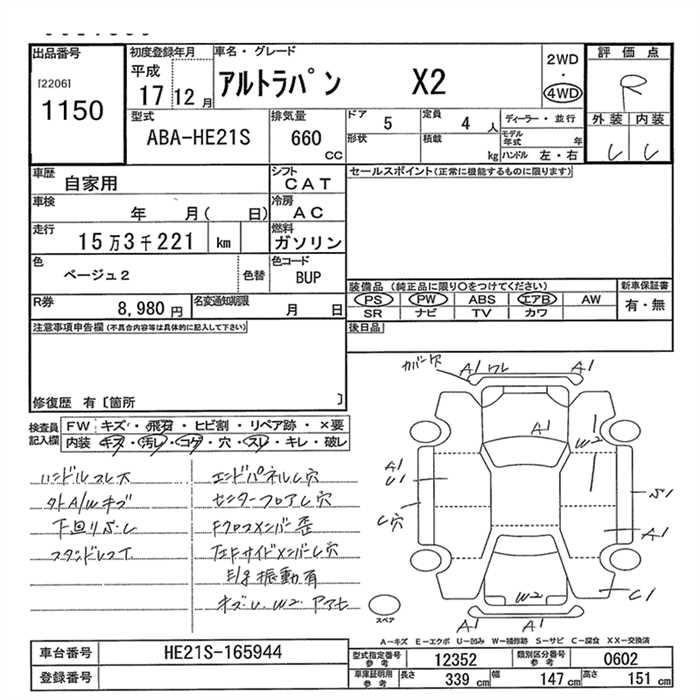 出品番号
[2206]
1150
初度登録年月
平成
17 12 月
車名・グレード
アルトラパン X2
2WD
・
4WD
評価点
R
外装 内装
型式
ABA-HE21S
排気量
660
CC
ドア
5
定員
4 人
形状
積載
kg
ディーラー・並行
モデル
年式 年
ハンドル 左・右
車歴
自家用
シフト
CAT
車検
年 月( 日)
冷房
AC
走行
15万3千221 km
燃料
ガソリン
色
ベージュ2
色替
色コード
BUP
R券
8,980 円
名変通知期限
月 日
セールスポイント(正常に機能するものに限ります)
装備品(純正品に限り○をつけてください)
PS PW ABS エアB AW
SR ナビ TV カワ
新車保証書
有・無
後日品
注意事項申告欄(不具合内容等は具体的に記入して下さい)
修復歴 有〔箇所 〕
検査員
記入欄
FW キズ・飛石・ヒビ割・リペア跡・×要
内装 キズ・汚レ・コゲ・穴・スレ・キレ・破レ
ハンドルスレ大
外A/Wキズ
下回りさび
エンドパネルU穴
センターフロアU穴
Fクロスメンバー歪
左Fサイドメンバー穴
E/g振動有
キズ・U.W2.アマヒ
カバー穴
A1 ワレ A1
A1
W2
A1
U1
A1
C1
W2
A1 A1
スペア
A-キズ E-エクボ U-凹み W-補修跡 S-サビ C-腐食 XX-交換済
車台番号
HE21S-165944
登録番号
型式指定番号
参考
12352
類別区分番号
参考
0602
車庫証明用
参考
長さ
339 cm
幅
147 cm
高さ
151 cm